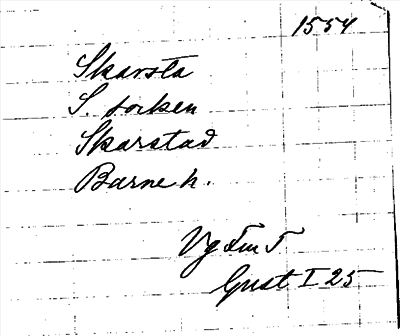 1554
Skarsta
S. socken
Skarstad
Barne h.
Vg Fm 5
Gust I 25